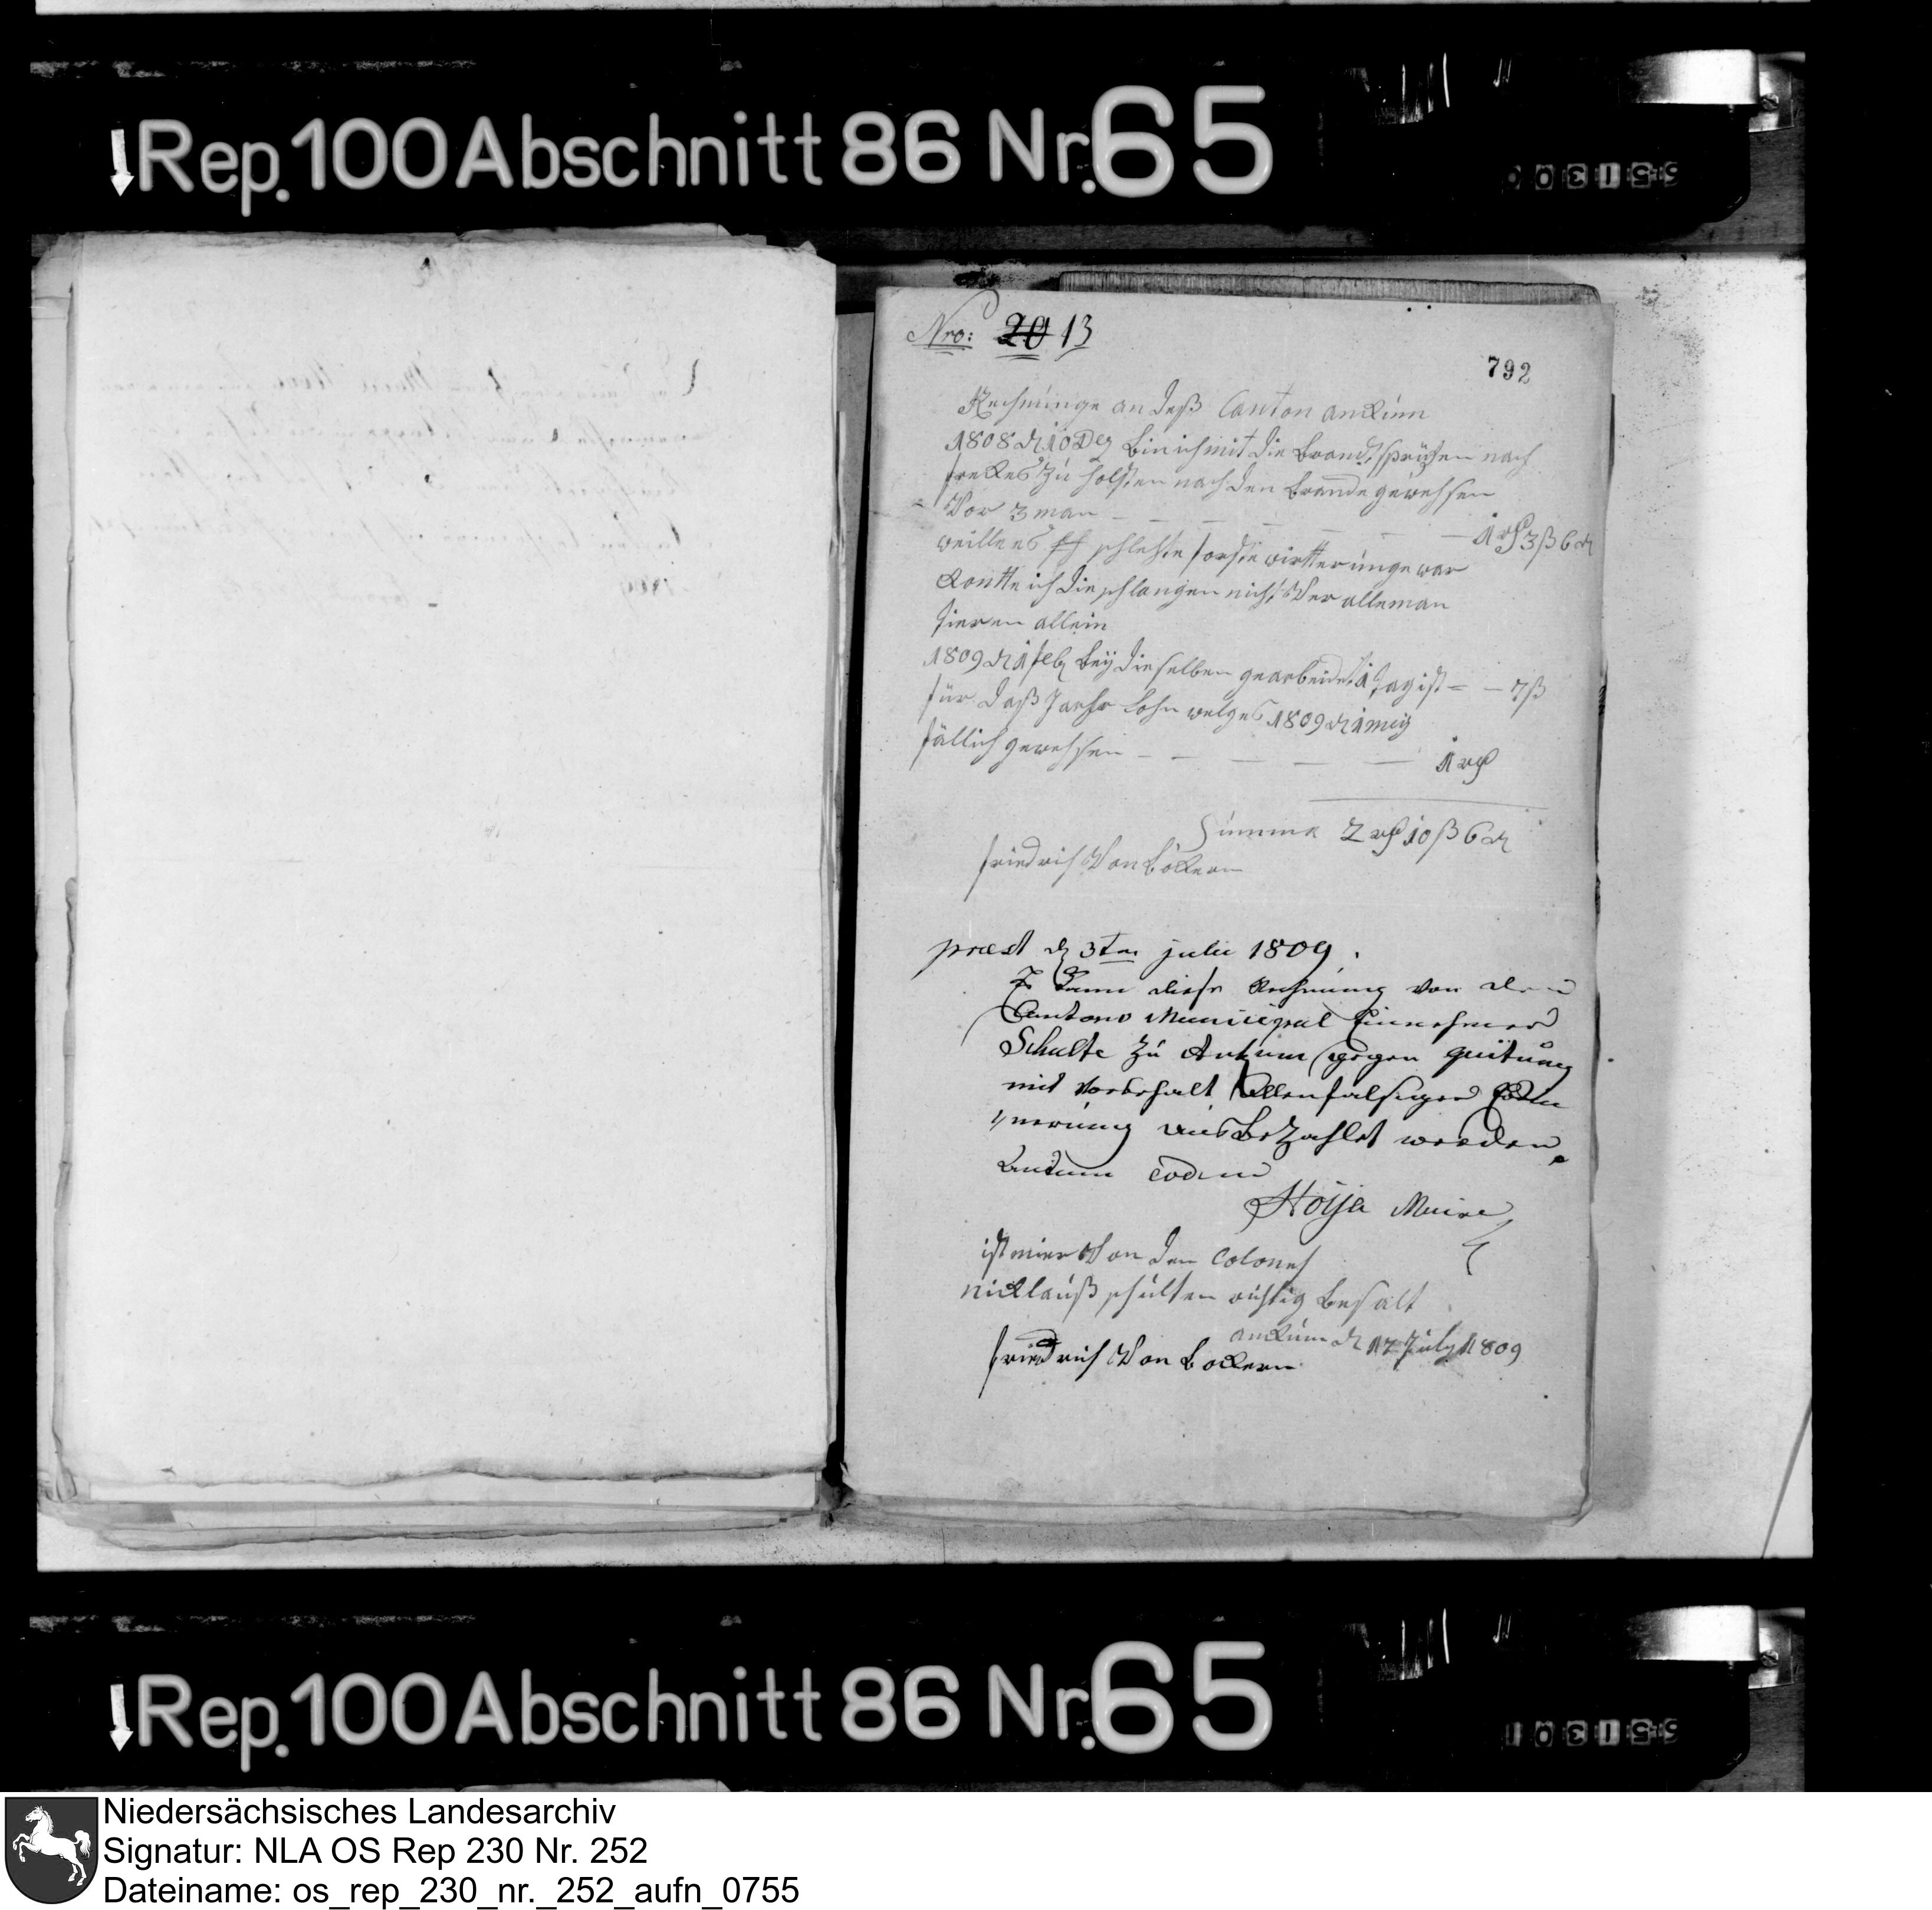 ↓Rep.100 Abschnitt 86 Nr.65
Nro: 20 13
792
Rechnunge an daß Canton anKum
1808 d 10 Dez bin ich mit die brandtsprützen nach
zu holsten nach den brande gewehsen
Vor 3 man — — — — — 1 rth 3 ß 6 d
weillens schlehte wirtterunge war
Kontte ich die schlangen nicht Ver alleman
tieren allein
1809 d 1 feb bey dieselben gearbeidet 1 tag ist — — 7 ß
für daß Jaehr lohn welges 1809 d 1 mey
fällich gewehsen — — — — — 1 rth
Summa 2 rth 10 ß 6 d
friedrich Von boKern
praest d 3ten julii 1809.
Kann diese Rechnung von dem
Cantons Municipal Einnehmer
Schulte zu Ankum gegen quitung
mit Vorbehalt allenfalsiger
ausbezahlet werden
Ankum eodem
Hoÿa Maire
ist mier Von den Colones
nicklauß schulten richtig besalt
anKum d 17 July 1809
friedrich Von boKern
↓Rep.100 Abschnitt 86 Nr.65
Niedersächsisches Landesarchiv
Signatur: NLA OS Rep 230 Nr. 252
Dateiname: os_rep_230_nr._252_aufn_0755